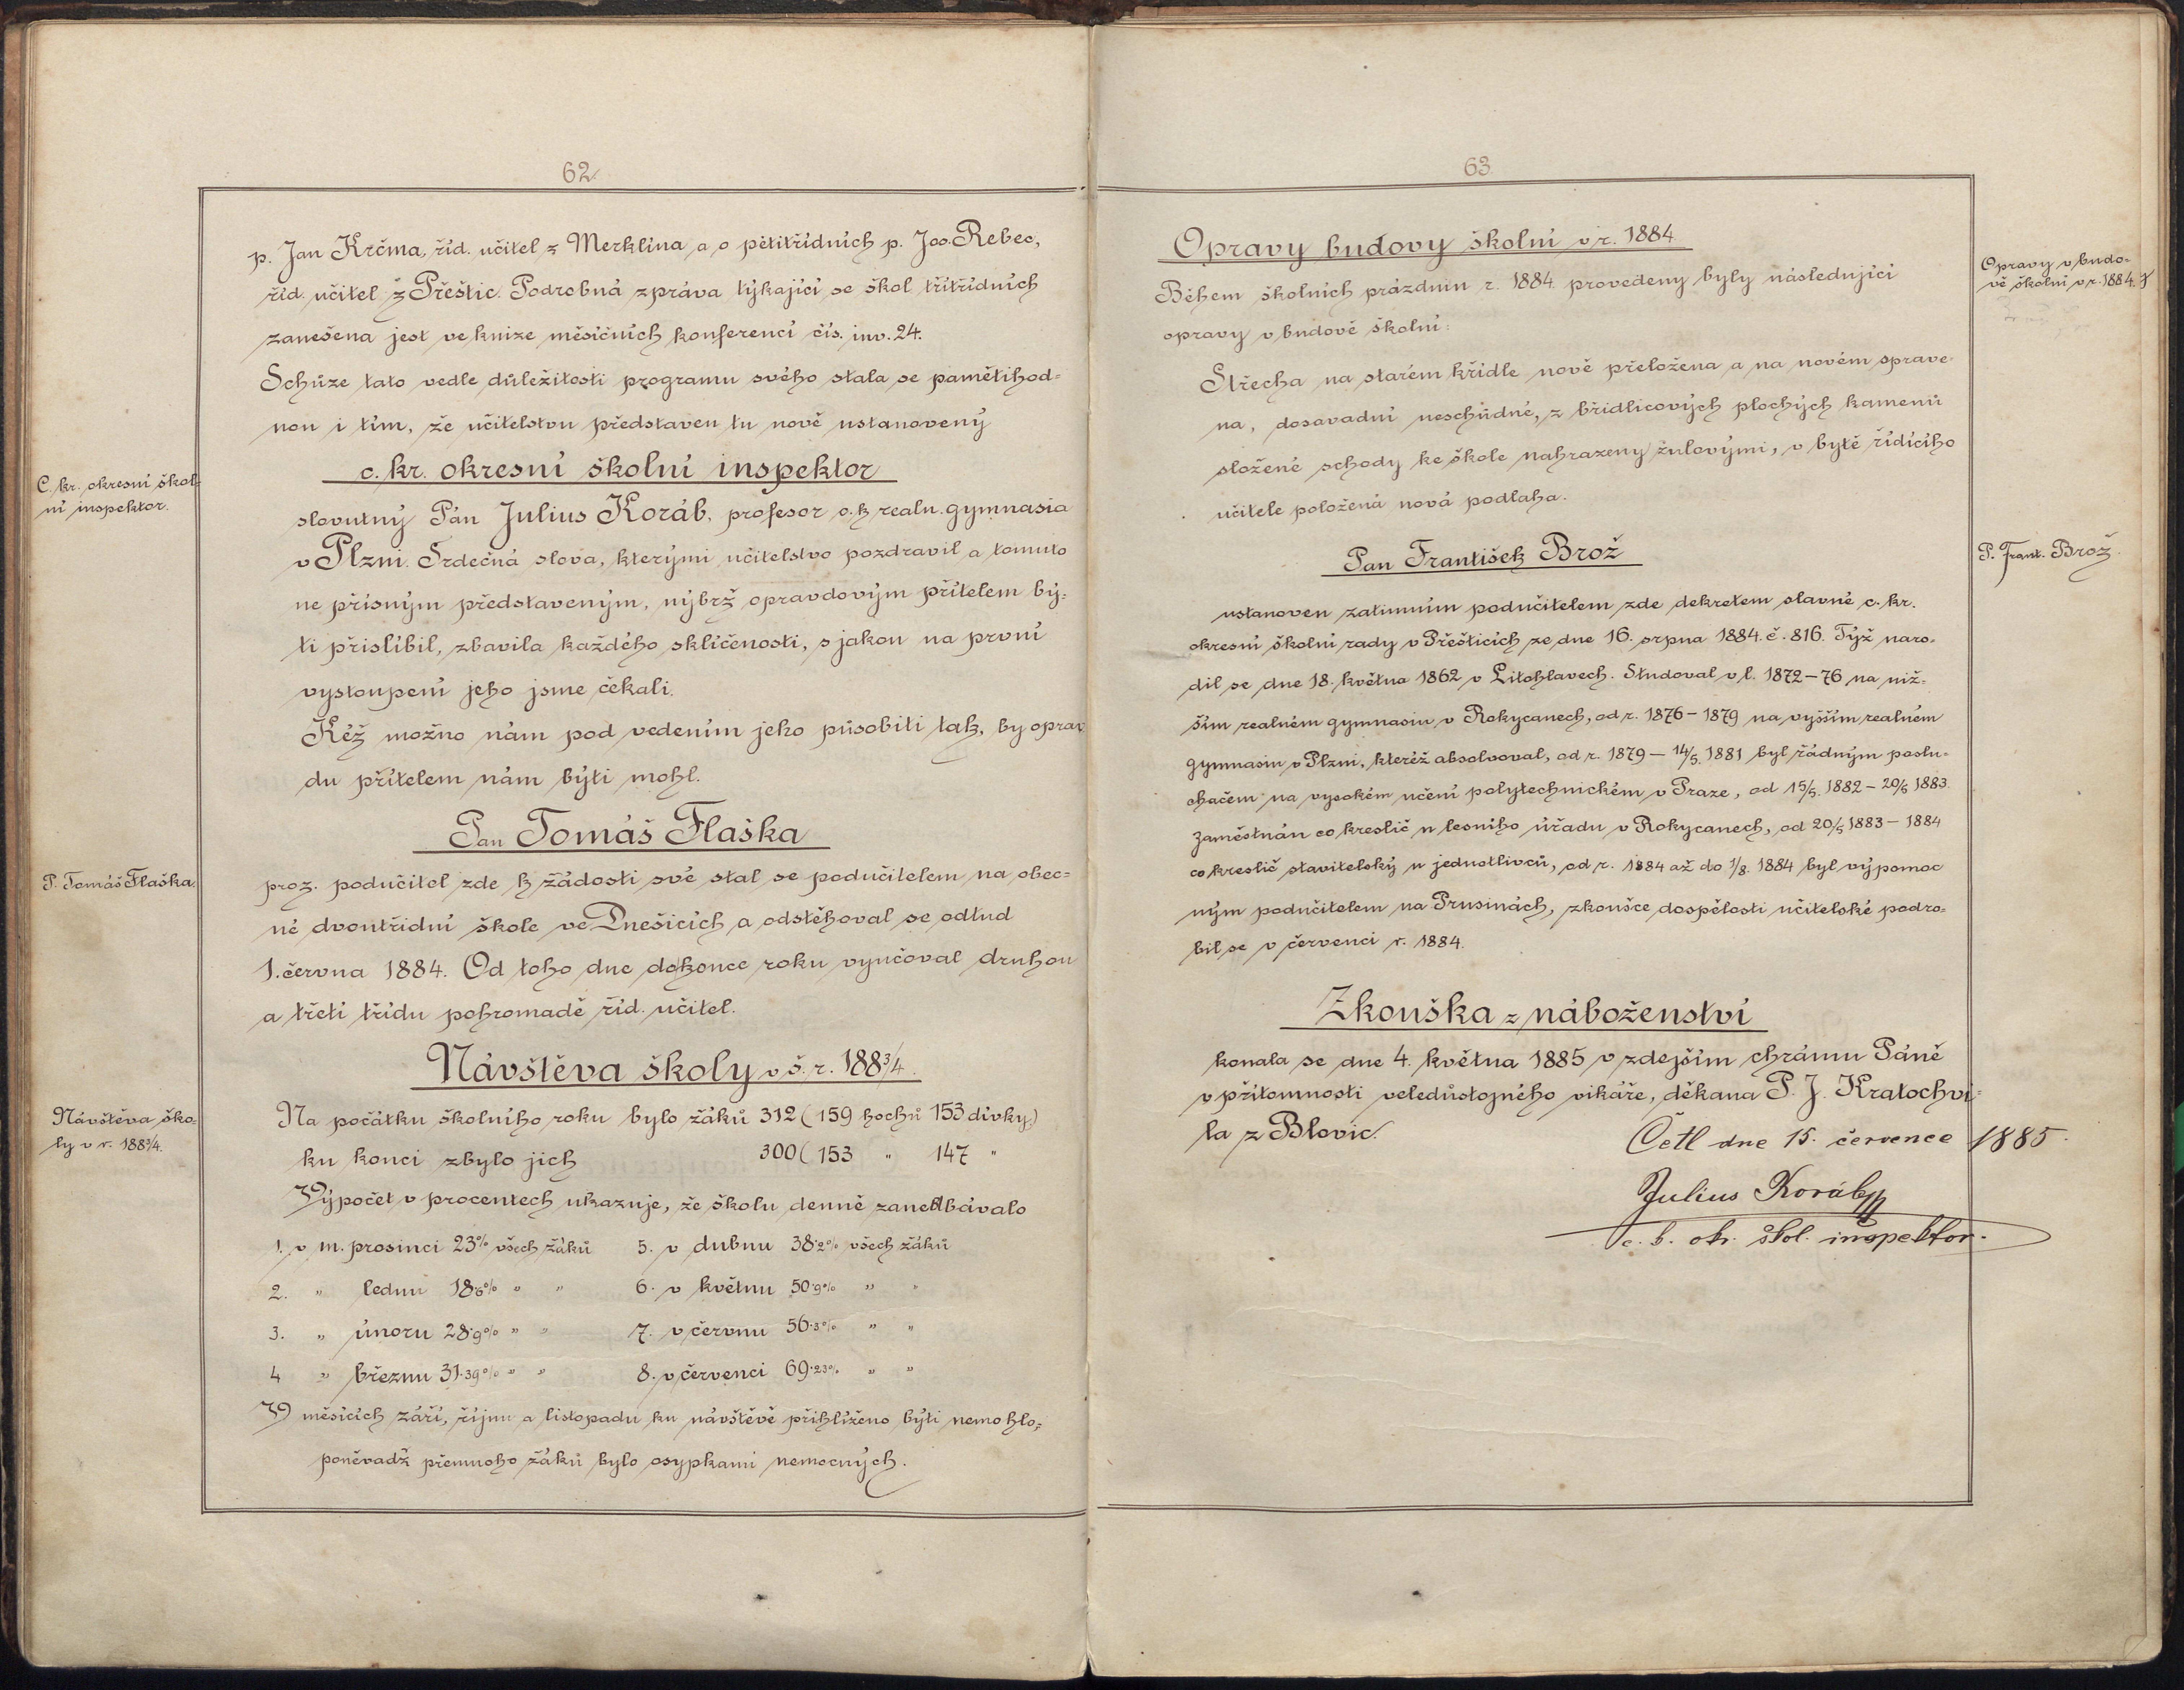 62.
p. Jan Krčma, říd. učitel z Merklína a o pětitřídních p. Jos. Rebec,
říd. učitel z Přeštic. Podrobná zpráva týkající se škol třítřídních
zanešena jest ve knize měsíčních konferencí čís. inv. 24.
Schůze tato vedle důležitosti programu svého stala se pamětihod-
nou i tím, že učitelstvu představen tu nově ustanovený
c. kr. okresní školní inspektor
C. kr. okresní škol-
ní inspektor.
slovutný Pán Julius Koráb, profesor c. k. realn. gymnasia
v Plzni. Srdečná slova, kterými učitelstvo pozdravil a tomuto
ne přísným představeným, nýbrž opravdovým přítelem bý-
ti přislíbil, zbavila každého sklíčenosti, s jakou na první
vystoupení jeho jsme čekali.
Kéž možno nám pod vedením jeho působiti tak, by oprav
du přítelem nám býti mohl.
Pan Tomáš Flaška
P. Tomáš Flaška.
proz. podučitel zde k žádosti své stal se podučitelem na obec-
né dvoutřídní škole ve Dnešicích a odstěhoval se odtud
1. června 1884. Od toho dne do konce roku vyučoval druhou
a třetí třídu pohromadě říd. učitel.
Návštěva školy v š. r. 188¾.
Návštěva ško-
ly v r. 188¾.
Na počátku školního roku bylo žáků 312 (159 hochů 153 dívky.)
ku konci zbylo jich 300 (153 " 147 "
Výpočet v procentech ukazuje, že školu denně zanedbávalo
1. v m. prosinci 23% všech žáků 5. v dubnu 38·2% všech žáků
2. " lednu 18·6% " " 6. v květnu 50·9% " "
3. " únoru 28·9% " " 7. v červnu 56·3% " "
4 " březnu 31·39% " " 8. v červenci 69·23% " "
V měsících září, říjnu a listopadu ku návštěvě přihlíženo býti nemohlo,
poněvadž přemnoho žáků bylo osypkami nemocných.
63
Opravy budovy školní v r. 1884.
Opravy v budo-
vě školní v r. 1884.
Během školních prázdnin r. 1884. provedeny byly následující
opravy v budově školní:
Střecha na starém křídle nově přeložena a na novém sprave-
na, dosavadní neschůdné, z břidlicových plochých kamenů
složené schody ke škole nahrazeny žulovými, v bytě řídícího
učitele položená nová podlaha.
Pan František Brož
P. Frant. Brož.
ustanoven zatimním podučitelem zde dekretem slavné c. kr.
okresní školní rady v Přešticích ze dne 16. srpna 1884. č. 816. Týž naro-
dil se dne 18. května 1862 v Litohlavech. Studoval v l. 1872–76 na niž-
ším realném gymnasiu v Rokycanech, od r. 1876–1879 na vyšším realném
gymnasiu v Plzni, kteréž absolvoval, od r. 1879 – 14/5. 1881 byl řádným poslu-
chačem na vysokém učení polytechnickém v Praze, od 15/5. 1882 – 20/5 1883.
zaměstnán co kreslič u lesního úřadu v Rokycanech, od 20/5 1883 – 1884
co kreslič stavitelský u jednotlivců, od r. 1884 až do 1/8. 1884 byl výpomoc
ným podučitelem na Prusinách, zkoušce dospělosti učitelské podro-
bil se v červenci r. 1884.
Zkouška z náboženství
konala se dne 4. května 1885 v zdejším chrámu Páně
v přítomnosti veledůstojného vikáře, děkana P. J. Kratochví-
la z Blovic.
Četl dne 15. července 1885.
Julius Koráb
c. k. okr. škol. inspektor.